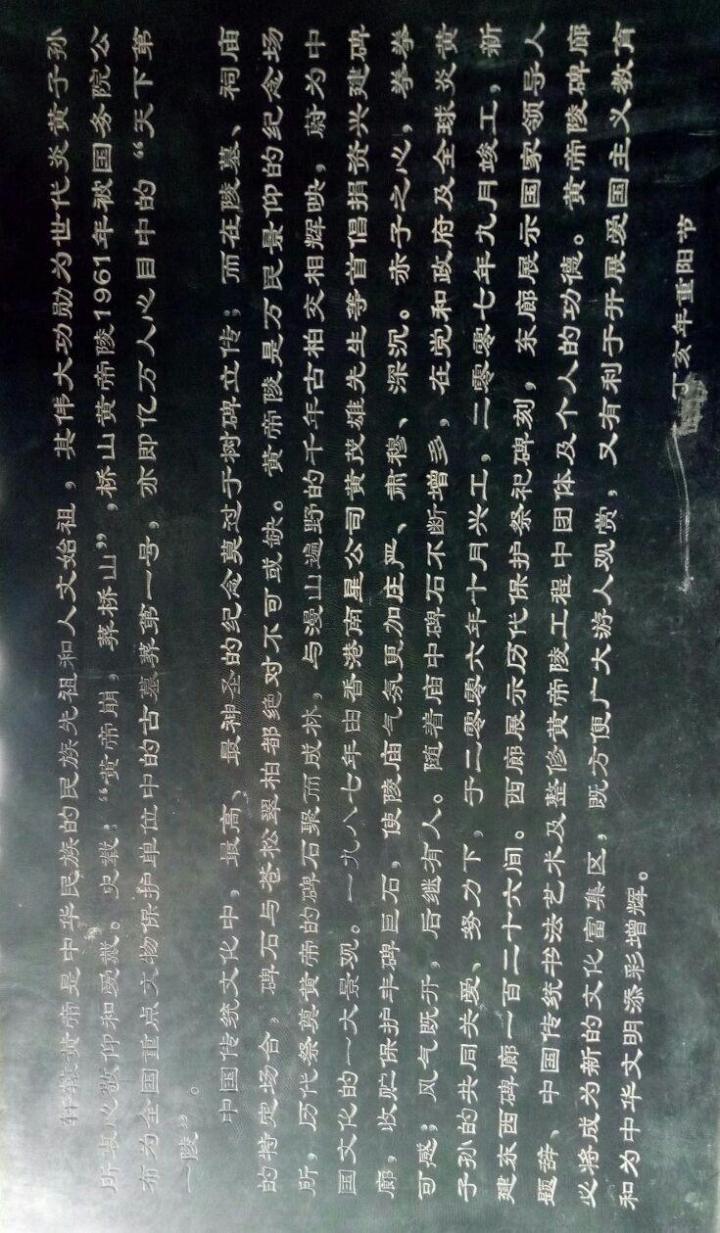 轩辕黄帝是中华民族的民族先祖和人文始祖，其伟大功勋为世代炎黄子孙
所衷心敬仰和爱戴。史载：“黄帝崩，葬桥山”，桥山黄帝陵1961年被国务院公
布为全国重点文物保护单位中的古墓葬第一号，亦即亿万人心目中的“天下第
一陵”。
中国传统文化中，最高、最神圣的纪念莫过于树碑立传；而在陵墓、祠庙
的特定场合，碑石与苍松翠柏都绝对不可或缺。黄帝陵是万民景仰的纪念场
所，历代祭奠黄帝的碑石聚而成林，与漫山遍野的千年古柏交相辉映，蔚为中
国文化的一大景观。一九八七年由香港南星公司黄茂雄先生等首倡捐资兴建碑
廊，收贮保护丰碑巨石，使陵庙气氛更加庄严、肃穆、深沉。赤子之心，拳拳
可感；风气既开，后继有人。随着庙中碑石不断增多，在党和政府及全球炎黄
子孙的共同关爱、努力下，于二零零六年十月兴工，二零零七年九月竣工，新
建东西碑廊一百二十六间。西廊展示历代保护祭祀碑刻，东廊展示国家领导人
题辞、中国传统书法艺术及整修黄帝陵工程中团体及个人的功德。黄帝陵碑廊
必将成为新的文化富集区，既方便广大游人观赏，又有利于开展爱国主义教育
和为中华文明添彩增辉。
丁亥年重阳节